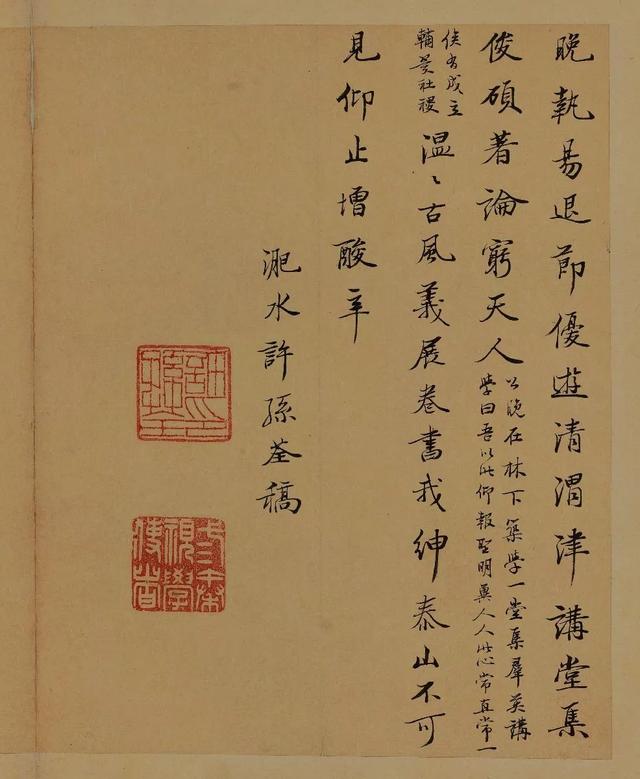 晚執易退節優遊清渭津講堂集
俊碩著論窮天人
公晚在林下築學一堂集羣英講
學曰吾以此仰報聖明冀人人此心常直常一
俟有成立
輔翼社稷
溫〻古風義展卷書我紳泰山不可
見仰止增酸辛
淝水許孫荃稿